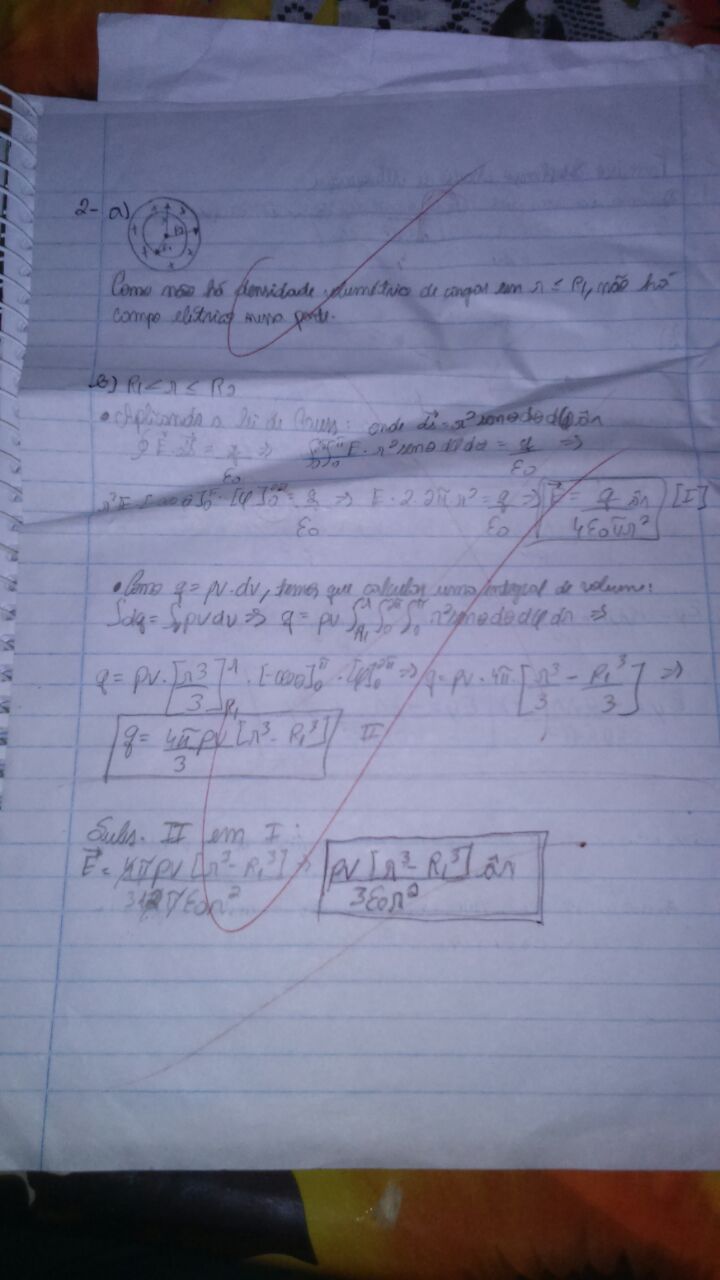 2- a)
Como não há densidade volumétrica de cargas em r ≤ R₁, não há
campo elétrico nessa parte.
b) R₁ < r ≤ R₂
• Aplicando a lei de Gauss: onde ds⃗ = r² senθ dθ dφ âr
∮ E⃗ · ds⃗ = q/ε₀ ⇒ ∫₀^2π ∫₀^π E · r² senθ dφ dθ = q/ε₀ ⇒
r² E · [-cosθ]₀^π · [φ]₀^2π = q/ε₀ ⇒ E · 2 · 2π r² = q/ε₀ ⇒ E⃗ = q/(4ε₀πr²) âr [I]
• Como q = ρv · dv, temos que calcular uma integral de volume:
∫dq = ∫ρv dv ⇒ q = ρv ∫_R₁^r ∫₀^2π ∫₀^π r² senθ dθ dφ dr ⇒
q = ρv · [r³/3]_R₁^r · [-cosθ]₀^π · [φ]₀^2π ⇒ q = ρv · 4π · [r³/3 - R₁³/3] ⇒
q = 4πρv/3 [r³ - R₁³] II
Subs. II em I:
E⃗ = 4πρv [r³ - R₁³] / πε₀r² ⇒ ρv [r³ - R₁³] / 3ε₀r² âr